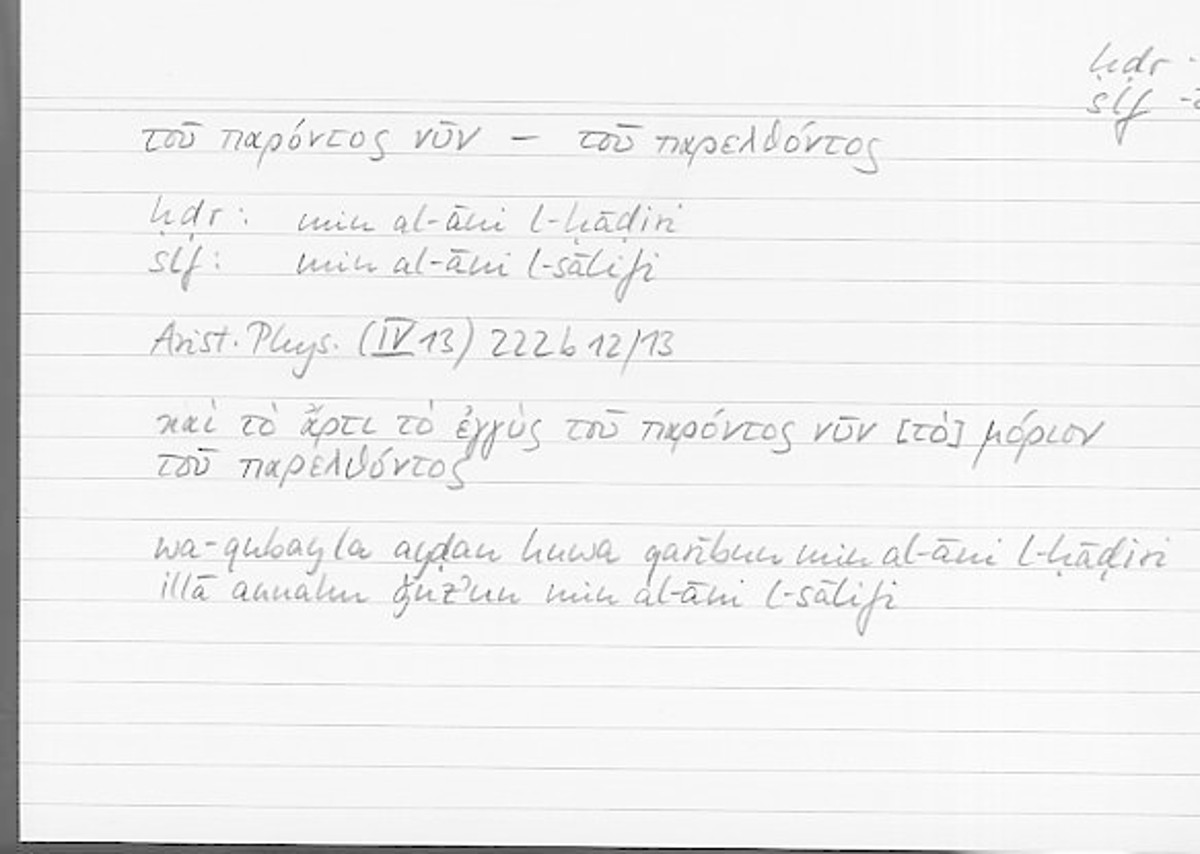 ḥḍr
slf
τοῦ παρόντος νῦν – τοῦ παρελθόντος
ḥḍr: min al-āni l-ḥāḍiri
slf: min al-āni l-sālifi
Arist. Phys. (IV 13) 222b 12/13
καὶ τὸ ἄρτι τὸ ἐγγὺς τοῦ παρόντος νῦν [τὸ] μόριον
τοῦ παρελθόντος
wa-qubayla ayḍan huwa qarībun min al-āni l-ḥāḍiri
illā annahu ǧuzʾun min al-āni l-sālifi